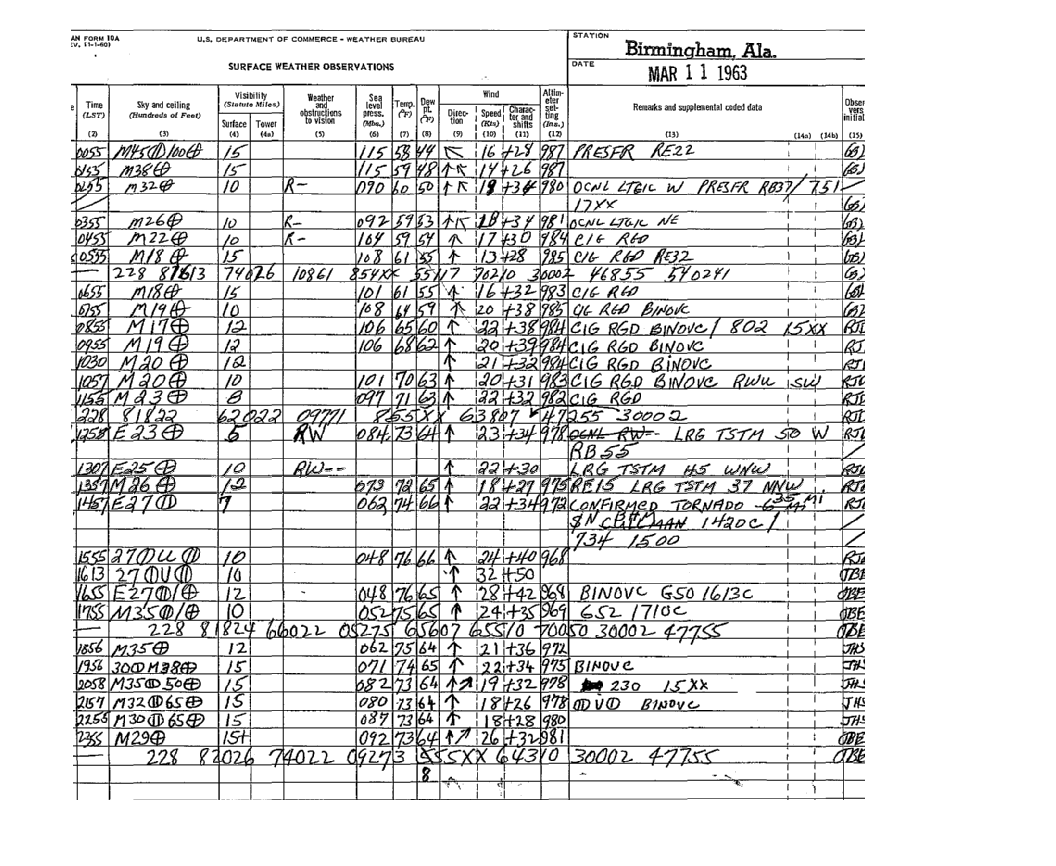 AN FORM 10A
EV. 11-1-60)
U.S. DEPARTMENT OF COMMERCE - WEATHER BUREAU
STATION
Birmingham, Ala.
SURFACE WEATHER OBSERVATIONS
DATE
MAR 11 1963
Time (LST) Sky and ceiling (Hundreds of Feet) Visibility (Statute Miles) Surface Tower Weather and obstructions to vision Sea level press. (Mbs.) Temp. (°F) Dew pt. (°F) Wind Direction Speed (Kts) Character and shifts Altimeter setting (Ins.) Remarks and supplemental coded data Observers initial
(2) (3) (4) (4a) (5) (6) (7) (8) (9) (10) (11) (12) (13) (14a) (14b) (15)
0055 M45⦶100⊕ 15 115 58 49 ↖ 16+24 987 PRESFR RE22
0155 M38⊕ 15 115 59 48 ↑↖ 14+26 987
0255 M32⊕ 10 R- 090 60 50 ↑↖ 18+34 980 OCNL LTGIC W PRESFR RB37/ 751
17XX
0355 M26⊕ 10 R- 092 59 53 ↑↖ 18+34 981 OCNL LTGIC NE
0455 M22⊕ 10 R- 104 59 54 ↑ 17+30 984 CIG RGD
0555 M18⊕ 15 108 61 55 ↑ 13+28 985 CIG RGD RE32
228 87613 74026 10861 854XX 55117 70210 30002 46855 540241
0655 M18⊕ 15 101 61 55 ↑ 16+32 983 CIG RGD
0755 M19⊕ 10 108 64 59 ↑ 20+38 985 CIG RGD BINOVC
0855 M17⊕ 12 106 65 60 ↑ 22+38 984 CIG RGD BINOVC/ 802 15XX RJT
0955 M19⊕ 12 106 68 62 ↑ 20+39 984 CIG RGD BINOVC
1030 M20⊕ 12 ↑ 21+32 984 CIG RGD BINOVC
1057 M20⊕ 10 101 70 63 ↑ 20+31 983 CIG RGD BINOVC RWU SW
1155 M23⊕ 8 097 71 63 ↑ 22+32 982 CIG RGD
228 81822 62022 09771 865XX 63807 47255 30002
1258 E23⊕ 5 RW 084 73 64 ↑ 23+34 978 OCNL RW-- LRG TSTM 50 W
RB55
1307 E25⊕ 10 RW-- ↑ 22+30 LRG TSTM 45 WNW
1357 M26⊕ 12 073 72 65 ↑ 18+27 975 RE15 LRG TSTM 37 NNW
1457 E27⦶ 7 062 74 66 ↑ 22+34 972 CONFIRMED TORNADO 35 MI
1420C/
734 1500
1555 27⦶U⦶ 10 048 76 66 ↑ 24+40 968
1613 27⦶U⦶ 10 ↑ 32+50
1655 E27⦶/⊕ 12 048 76 65 ↑ 28+42 968 BINOVC G50 1613C
1755 M35⦶/⊕ 10 052 75 65 ↑ 24+35 969 652 1710C
228 81824 66022 05275 65607 65510 70050 30002 47755
1856 M35⊕ 12 062 75 64 ↑ 21+36 972 JHS
1956 30⦶M38⊕ 15 071 74 65 ↑ 22+34 975 BINOVC
2058 M35⦶50⊕ 15 082 73 64 ↑↗ 19+32 978 230 15XX
2157 M32⦶65⊕ 15 080 73 64 ↑ 18+26 978 ⦶U⦶ BINOVC JHS
2255 M30⦶65⊕ 15 087 73 64 ↑ 18+28 980 JHS
2355 M29⊕ 15+ 092 73 64 ↑↗ 26+32 981
228 82026 74022 09273 855XX 64310 30002 47755
8